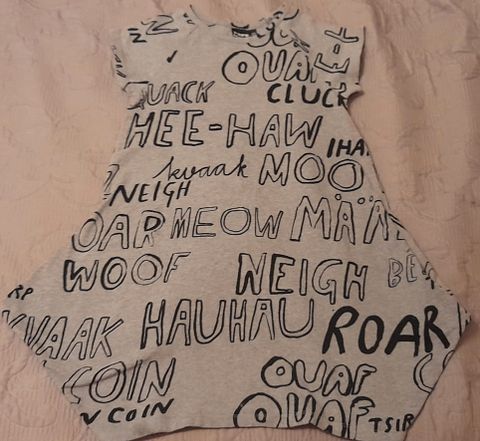 OUAF
QUACK CLUCK
HEE-HAW IHA
kvaak MOO
NEIGH
OAR MEOW MÄÄ
WOOF NEIGH BE
RP
KVAAK HAUHAU ROAR
COIN OUAF
N COIN OUAF TSIR